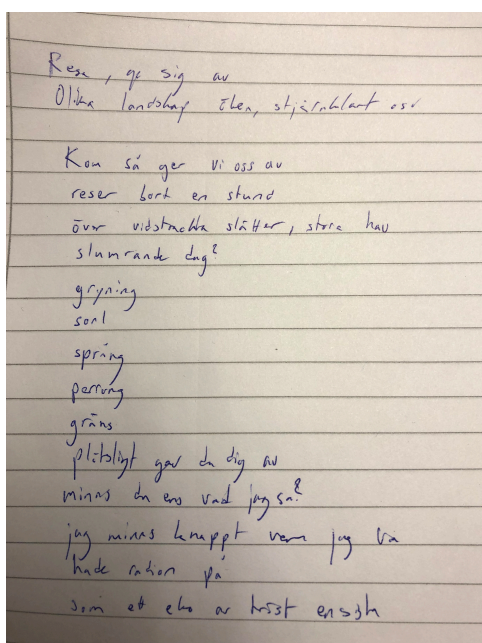 Resa, ge sig av
Olika landskap öken, stjärnklart osv
Kom så ger vi oss av
reser bort en stund
över vidsträckta slätter, stora hav
slumrande dag?
gryning
sorl
språng
perrong
gräns
plötsligt gav du dig av
minns du ens vad jag sa?
jag minns knappt vem jag va
hade radion på
som ett eko av